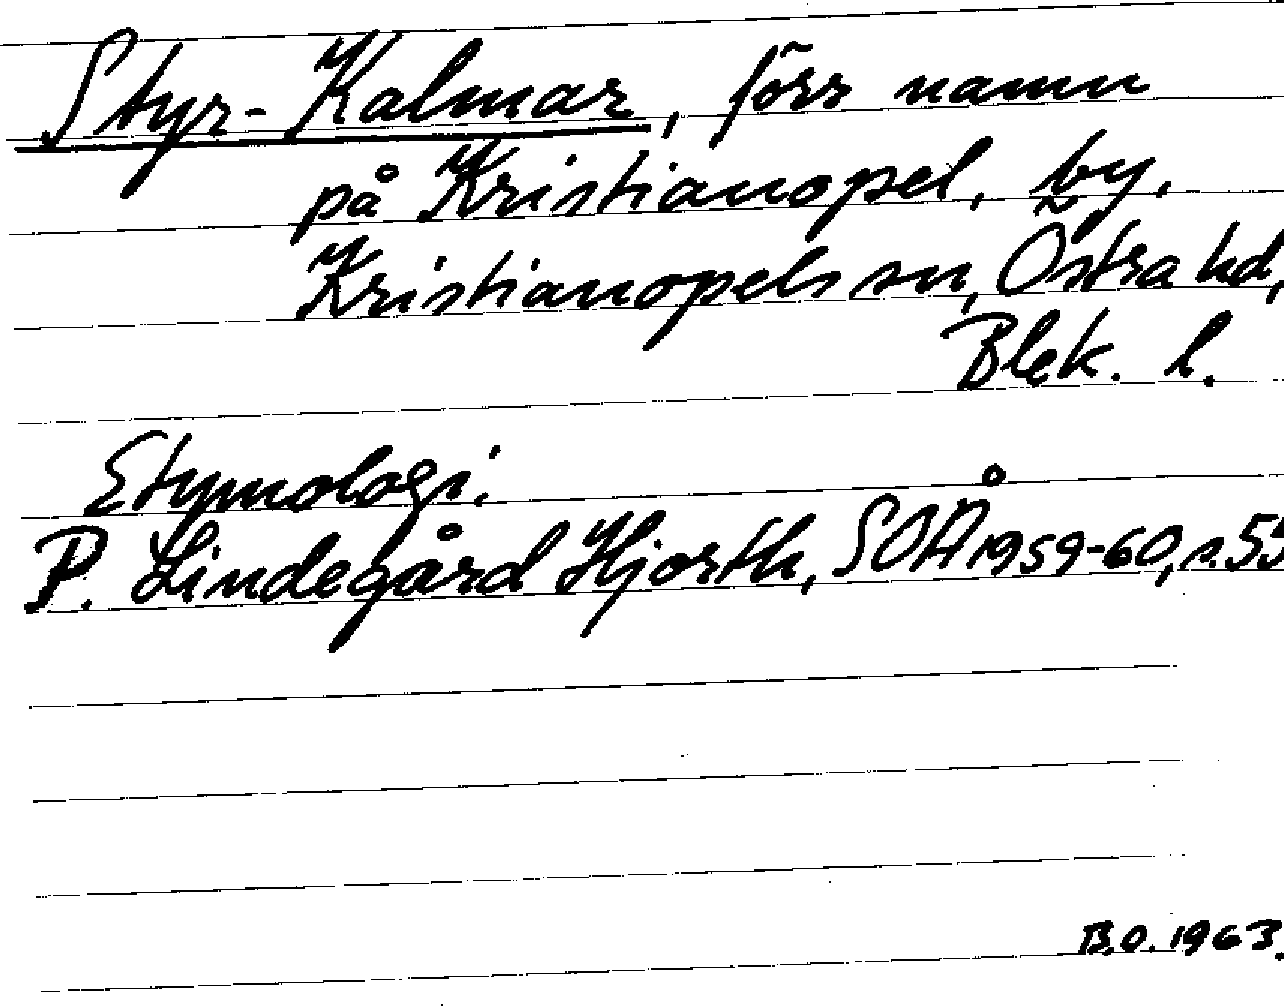 Styr-Kalmar, förr namn
på Kristianopel, by,
Kristianopels sn, Östra hd,
Blek. l.
Etymologi:
P. Lindegård Hjorth, SOÅ 1959-60, s. 55
B.O. 1963.